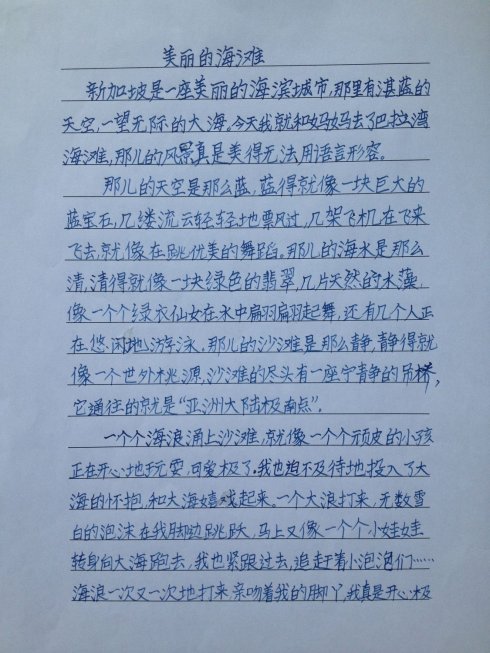 美丽的海滩
新加坡是一座美丽的海滨城市,那里有湛蓝的
天空,一望无际的大海。今天我就和妈妈去了巴拉湾
海滩,那儿的风景真是美得无法用语言形容。
那儿的天空是那么蓝,蓝得就像一块巨大的
蓝宝石,几缕流云轻轻地飘过,几架飞机在飞来
飞去,就像在跳优美的舞蹈。那儿的海水是那么
清,清得就像一块绿色的翡翠,几片天然的水藻,
像一个个绿衣仙女在水中翩翩起舞,还有几个人正
在悠闲地游泳。那儿的沙滩是那么静,静得就
像一个世外桃源,沙滩的尽头有一座宁静的吊桥,
它通往的就是“亚洲大陆极南点”。
一个个海浪涌上沙滩,就像一个个顽皮的小孩
正在开心地玩耍,可爱极了。我也迫不及待地投入了大
海的怀抱,和大海嬉戏起来。一个大浪打来,无数雪
白的泡沫在我脚边跳跃,马上又像一个个小娃娃
转身向大海跑去,我也紧跟过去,追赶着小泡泡们……
海浪一次又一次地打来,亲吻着我的脚丫,我真是开心极